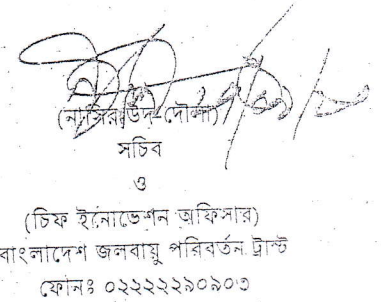 (নাসির-উদ-দৌলা)
সচিব
ও
(চিফ ইনোভেশন অফিসার)
বাংলাদেশ জলবায়ু পরিবর্তন ট্রাস্ট
ফোনঃ ০২২২২২৯০৯০৩